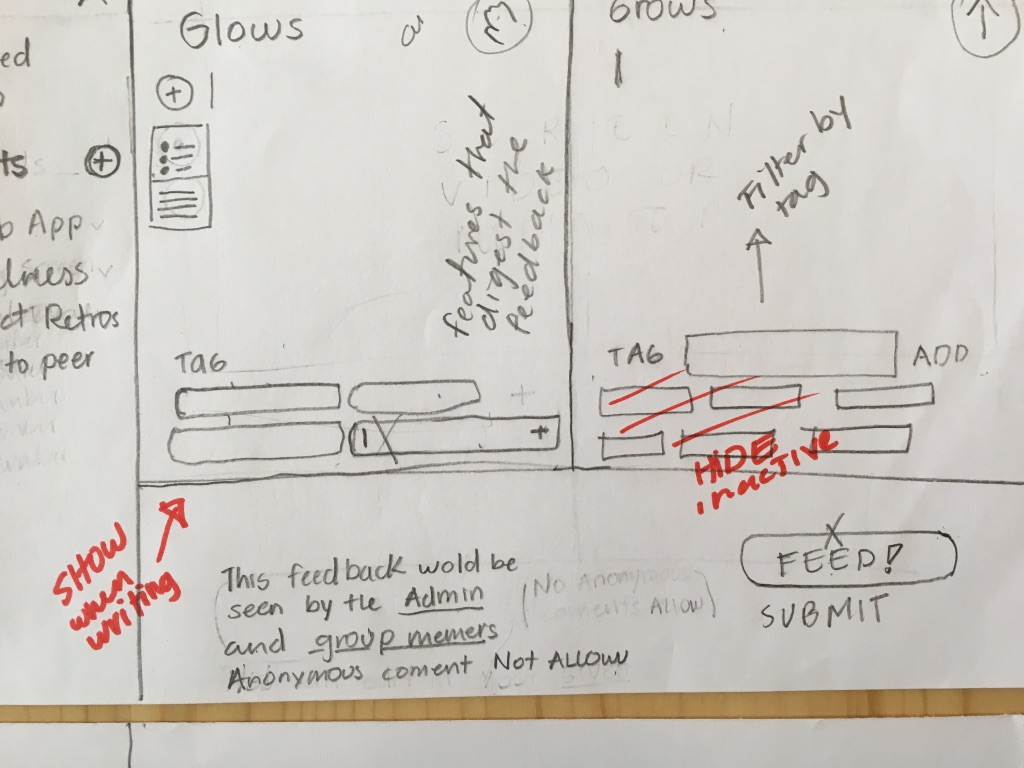 Glows
or
Grows
ed
ts
App
lness
ct Retros
to peer
features that
digest the
feedback
Filter by
tag
TAG
TAG
ADD
HIDE
inactive
SHOW
when
writing
This feedback wold be
seen by the Admin
and group memers
Anonymous coment Not Allow
(No Anonymous
coments Allow)
FEED!
SUBMIT